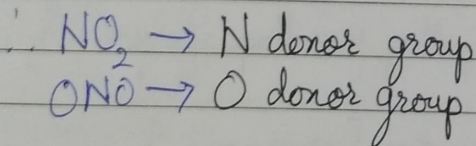 ∴ NO₂ → N donor group
ONO → O donor group